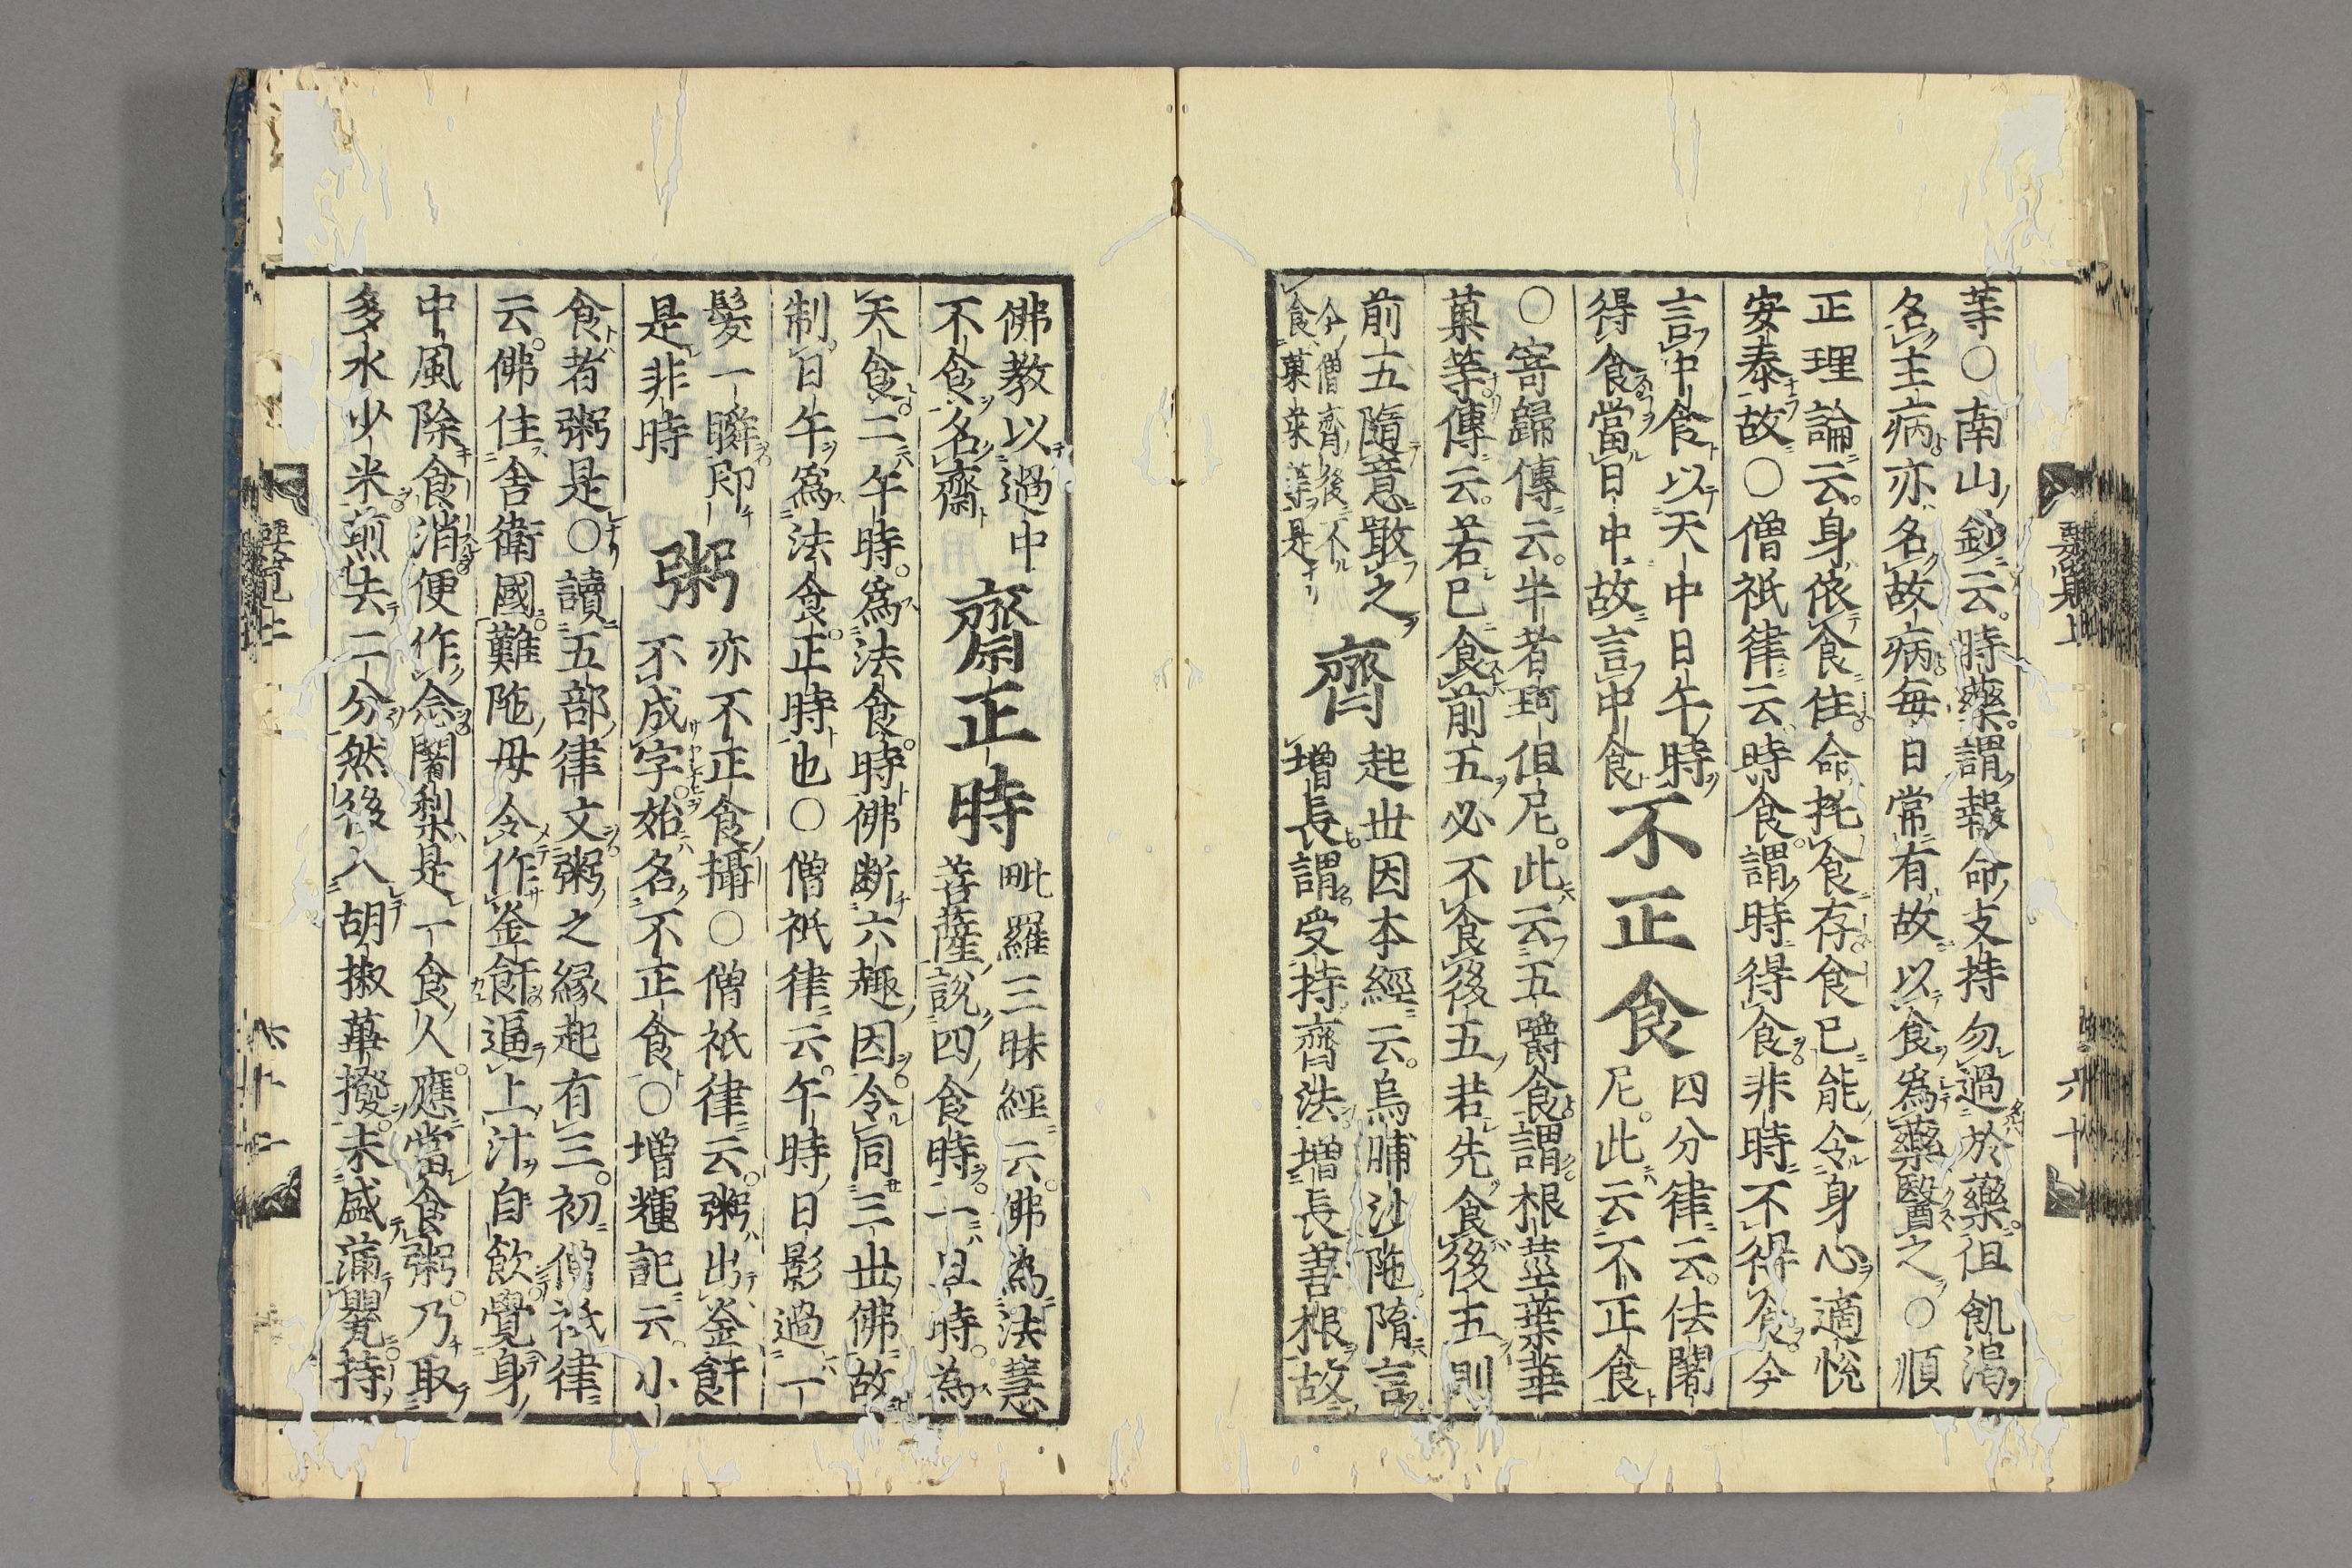 等○南山鈔云時藥謂報命支持勿過於藥但飢渴
名主病亦名故病每日常有故以食爲藥醫之○順
正理論云身依食住命托食存食已能令身心適悅
安泰故○僧祇律云時食謂時得食非時不得食今
言中食以天中日午時
得食當日中故言中食
不正食
四分律云佉闍
尼此云不正食
○寄歸傳云半者珂但尼此云五嚼食謂根莖葉華
菓等傳云若已食前五必不食後五若先食後五則
前五隨意噉之
今僧齊後不
食菓菜等是
齊
起世因本經云烏晡沙陁隋言
增長謂受持齊法增長善根故
要覽上
六十
佛教以過中
不食名齋
齋正時
毗羅三昧經云佛為法慧
菩薩說四食時一旦時為
天食二午時為法食時佛断六趣因令同三世佛故
制日午爲法食正時也○僧祇律云午時日影過一
髮一瞬即
是非時
粥
亦不正食攝○僧祇律云粥出釜飦
不成字始名不正食○增輝記云小
食者粥是○讀五部律文粥之緣起有三初僧祇律
云佛住舍衛國難陁母令作釜飦逼上汁自飲覺身
中風除食消便作念闍梨是一食人應當食粥乃取
多水少米煎去二分然後入胡椒蓽撥末盛滿甖持
六十一